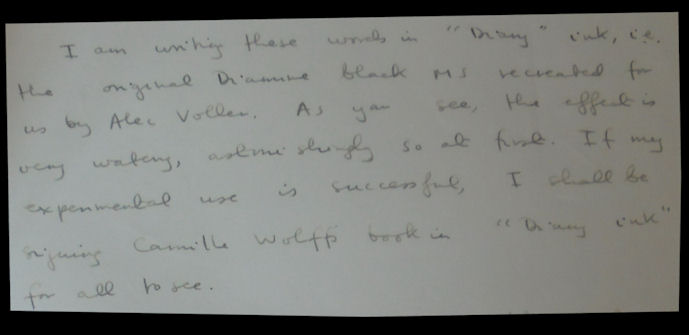 I am writing these words in "Diary" ink, i.e.
the original Diamine black MS recreated for
us by Alec Voller. As you see, the effect is
very watery, astonishingly so at first. If my
experimental use is successful, I shall be
signing Camille Wolff's book in "Diary ink"
for all to see.